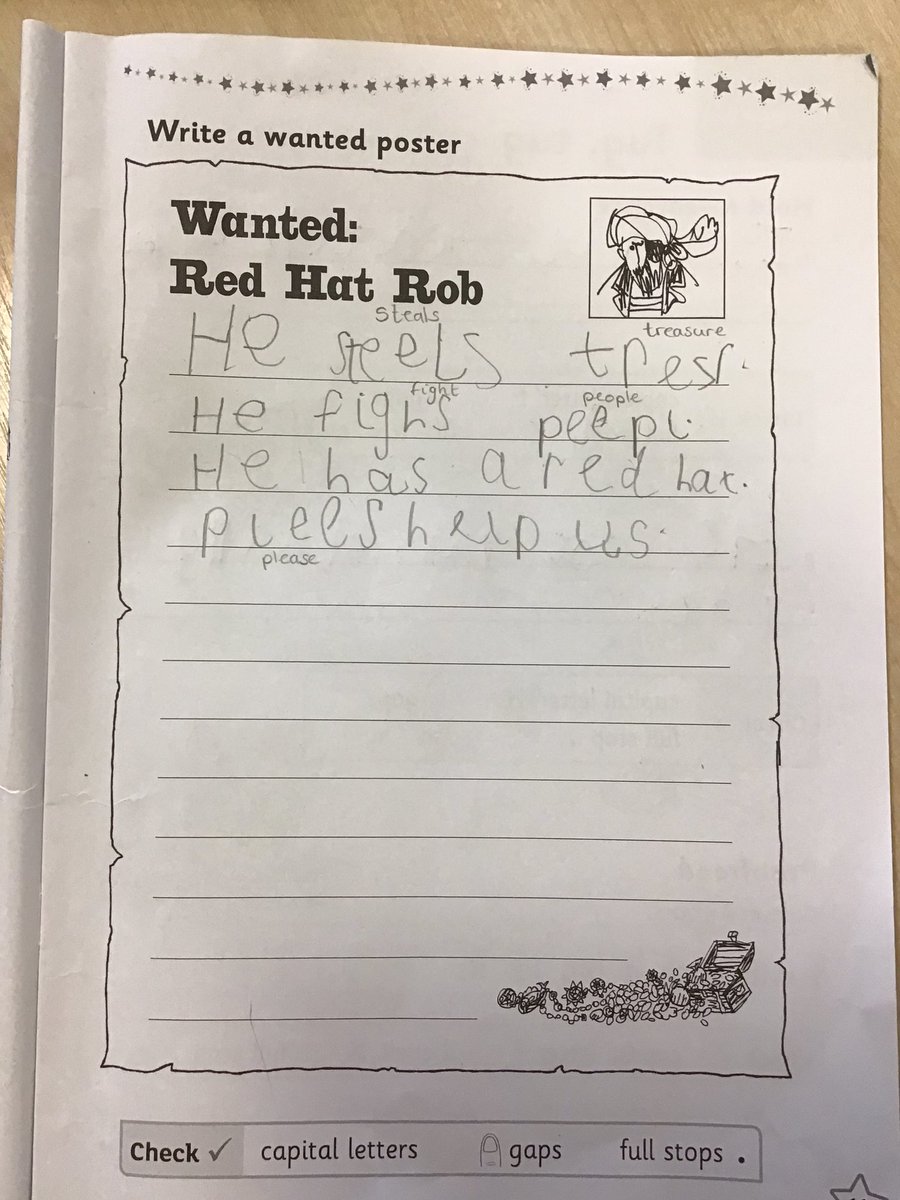 Write a wanted poster
Wanted:
Red Hat Rob
steals
He steels tresr.
treasure
fight
people
He fighs peepl.
He has a red hat.
pleels help us.
please
Check ✓ capital letters gaps full stops .